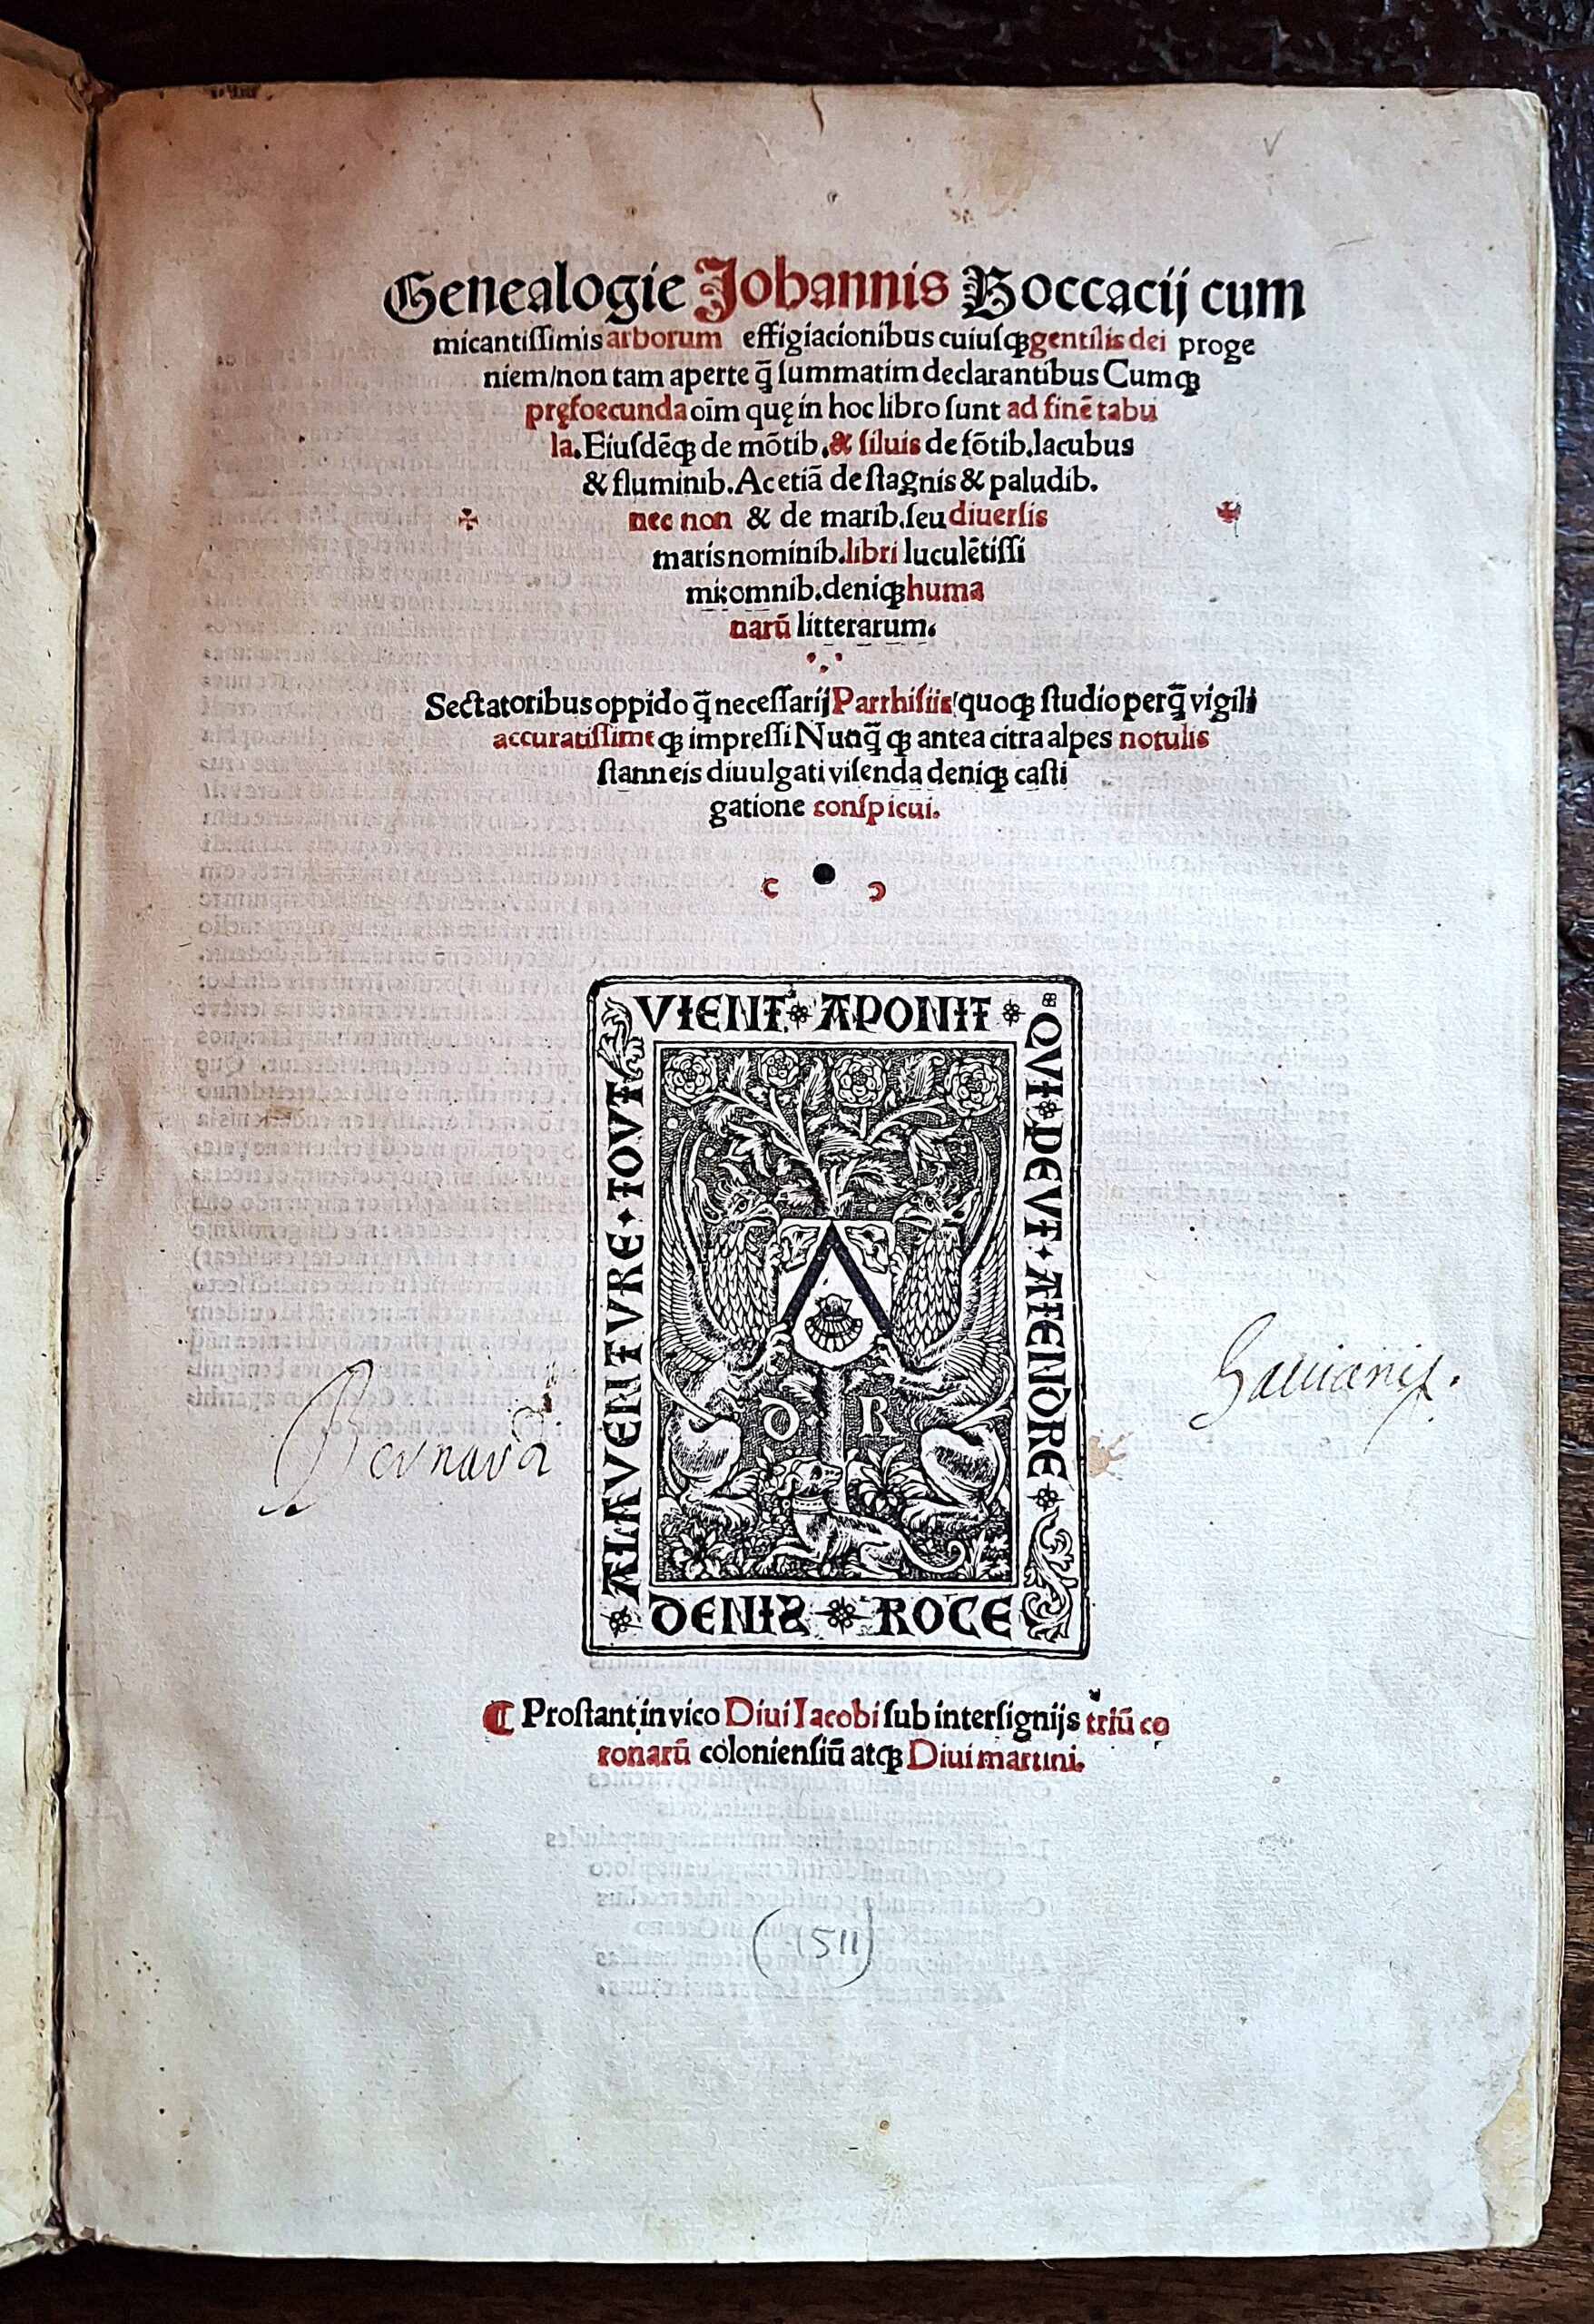 Genealogie Johannis Boccacij cum
micantiſſimis arborum effigiacionibus cuiuſqꝫ gentilis dei proge
niem/non tam aperte q̃ ſummatim declarantibus Cumqꝫ
pręfoecunda oīm quę in hoc libro ſunt ad finē tabu
la. Eiuſdēqꝫ de mōtib. & ſiluis de fōtib. lacubus
& fluminib. Ac etiā de ſtagnis & paludib.
nec non & de marib. ſeu diuerſis
maris nominib. libri luculētiſſi
mi: omnib. deniqꝫ huma
narū litterarum.
Sectatoribus oppido q̃ neceſſarij Parrhiſiis quoqꝫ ſtudio perq̃ vigili
accuratiſſimeqꝫ impreſſi Nunq̃qꝫ antea citra alpes notulis
ſtanneis diuulgati viſenda deniqꝫ caſti
gatione conſpicui.
ALAVENTVRE · TOVT
VIENT APONIT
QVI PEVT · ATENDRE
D R
DENIS ROCE
Bernard
¶ Proſtant in vico Diui Iacobi ſub interſignijs triū co
ronarū colonienſiū atqꝫ Diui martini.
(1511)